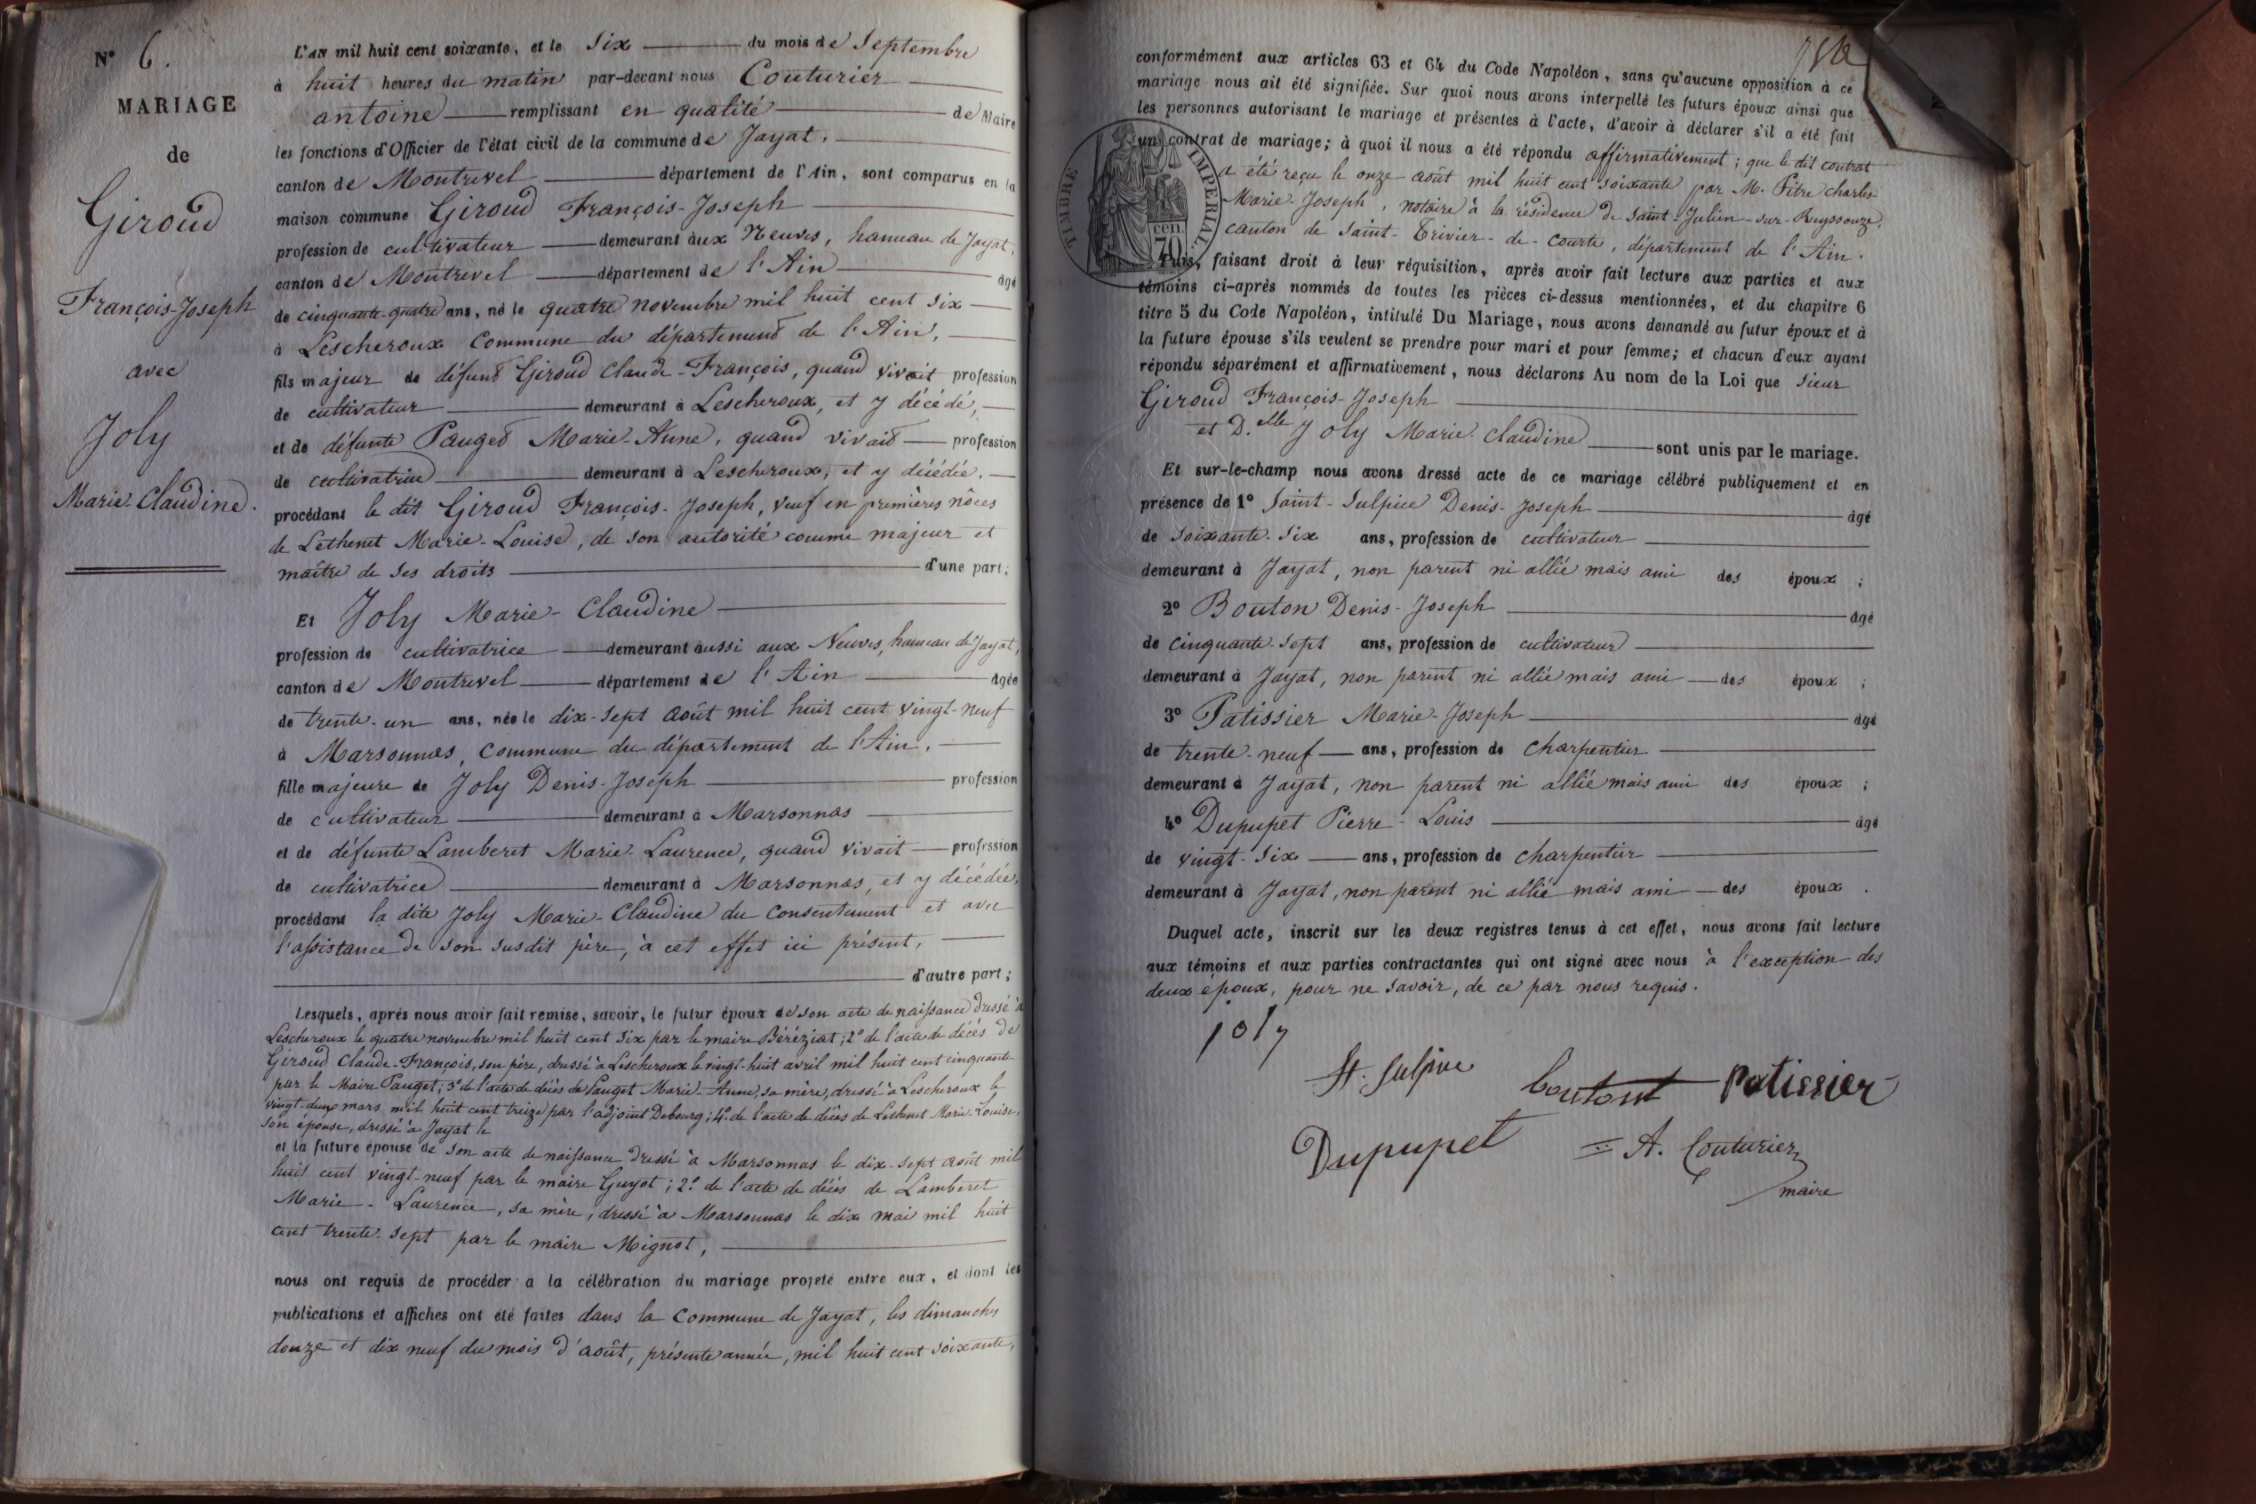 N° 6.
MARIAGE
de
Giroud
François-Joseph
avec
Joly
Marie-Claudine.
L'an mil huit cent soixante, et le six du mois de Septembre
à huit heures du matin par-devant nous Couturier
antoine remplissant en qualité de Maire
les fonctions d'Officier de l'état civil de la commune de Jayat,
canton de Montrevel département de l'Ain, sont comparus en la
maison commune Giroud François-Joseph
profession de cultivateur demeurant aux Neuves, hameau de Jayat,
canton de Montrevel département de l'Ain âgé
de cinquante-quatre ans, né le quatre novembre mil huit cent six
à Lescheroux Commune du département de l'Ain,
fils majeur de défunt Giroud Claude-François, quand vivait profession
de cultivateur demeurant à Lescheroux, et y décédé,
et de défunte Pauget Marie-Anne, quand vivait profession
de cultivatrice demeurant à Lescheroux, et y décédée.
procédant le dit Giroud François-Joseph, veuf en premières nôces
de Lethenet Marie-Louise, de son autorité comme majeur et
maître de ses droits d'une part;
Et Joly Marie-Claudine
profession de cultivatrice demeurant aussi aux Neuves, hameau de Jayat,
canton de Montrevel département de l'Ain âgée
de trente-un ans, née le dix-sept août mil huit cent vingt-neuf
à Marsonnas, commune du département de l'Ain,
fille majeure de Joly Denis-Joseph profession
de cultivateur demeurant à Marsonnas
et de défunte Lamberet Marie-Laurence, quand vivait profession
de cultivatrice demeurant à Marsonnas, et y décédée,
procédant la dite Joly Marie-Claudine du consentement et avec
l'assistance de son susdit père, à cet effet ici présent,
d'autre part;
Lesquels, après nous avoir fait remise, savoir, le futur époux de son acte de naissance dressé à
Lescheroux le quatre novembre mil huit cent six par le maire Béréziat; 2° de l'acte de décès de
Giroud Claude-François, son père, dressé à Lescheroux le vingt-huit avril mil huit cent cinquante
par le Maire Pauget; 3° de l'acte de décès de Pauget Marie-Anne, sa mère, dressé à Lescheroux le
vingt-deux mars mil huit cent treize par l'adjoint Debourg; 4° de l'acte de décès de Lethenet Marie-Louise,
son épouse, dressé à Jayat le
et la future épouse de son acte de naissance dressé à Marsonnas le dix-sept août mil
huit cent vingt-neuf par le maire Guyot; 2° de l'acte de décès de Lamberet
Marie-Laurence, sa mère, dressé à Marsonnas le dix mai mil huit
cent trente-sept par le maire Mignot,
nous ont requis de procéder à la célébration du mariage projeté entre eux, et dont les
publications et affiches ont été faites dans la Commune de Jayat, les dimanches
douze et dix neuf du mois d'août, présente année, mil huit cent soixante,
conformément aux articles 63 et 64 du Code Napoléon, sans qu'aucune opposition à ce
mariage nous ait été signifiée. Sur quoi nous avons interpellé les futurs époux ainsi que
les personnes autorisant le mariage et présentes à l'acte, d'avoir à déclarer s'il a été fait
un contrat de mariage; à quoi il nous a été répondu affirmativement; que le dit contrat
a été reçu le onze août mil huit cent soixante par M. Pitre Charles
Marie-Joseph, notaire à la résidence de Saint-Julien-sur-Reyssouze,
canton de Saint-Trivier-de-Courte, département de l'Ain.
TIMBRE IMPERIAL
70 cen.
Puis, faisant droit à leur réquisition, après avoir fait lecture aux parties et aux
témoins ci-après nommés de toutes les pièces ci-dessus mentionnées, et du chapitre 6
titre 5 du Code Napoléon, intitulé Du Mariage, nous avons demandé au futur époux et à
la future épouse s'ils veulent se prendre pour mari et pour femme; et chacun d'eux ayant
répondu séparément et affirmativement, nous déclarons Au nom de la Loi que sieur
Giroud François-Joseph
et D.elle Joly Marie-Claudine sont unis par le mariage.
Et sur-le-champ nous avons dressé acte de ce mariage célébré publiquement et en
présence de 1° Saint-Sulpice Denis-Joseph âgé
de soixante-six ans, profession de cultivateur
demeurant à Jayat, non parent ni allié mais ami des époux;
2° Bouton Denis-Joseph âgé
de cinquante-sept ans, profession de cultivateur
demeurant à Jayat, non parent ni allié mais ami des époux;
3° Patissier Marie-Joseph âgé
de trente-neuf ans, profession de charpentier
demeurant à Jayat, non parent ni allié mais ami des époux;
4° Dupupet Pierre-Louis âgé
de vingt-six ans, profession de charpentier
demeurant à Jayat, non parent ni allié mais ami des époux.
Duquel acte, inscrit sur les deux registres tenus à cet effet, nous avons fait lecture
aux témoins et aux parties contractantes qui ont signé avec nous à l'exception des
deux époux, pour ne savoir, de ce par nous requis.
joly
St. Sulpice
boutont Patissier
Dupupet A. Couturier
maire